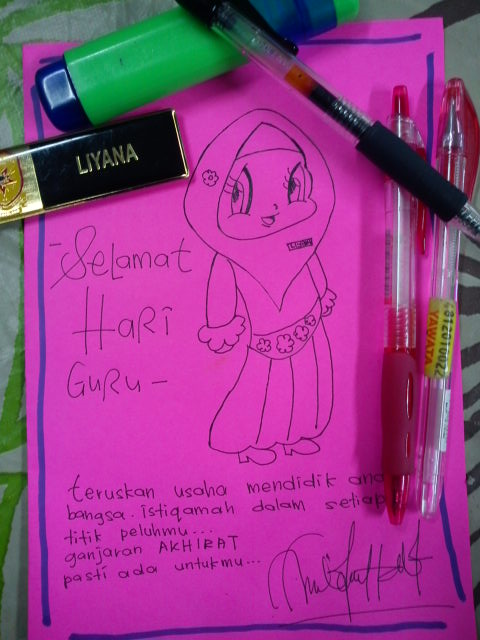 LIYANA
Selamat
Hari
Guru -
teruskan usaha mendidik
bangsa. istiqamah dalam setiap
titik peluhmu...
ganjaran AKHIRAT
pasti ada untukmu...
6812010022
YAWATA